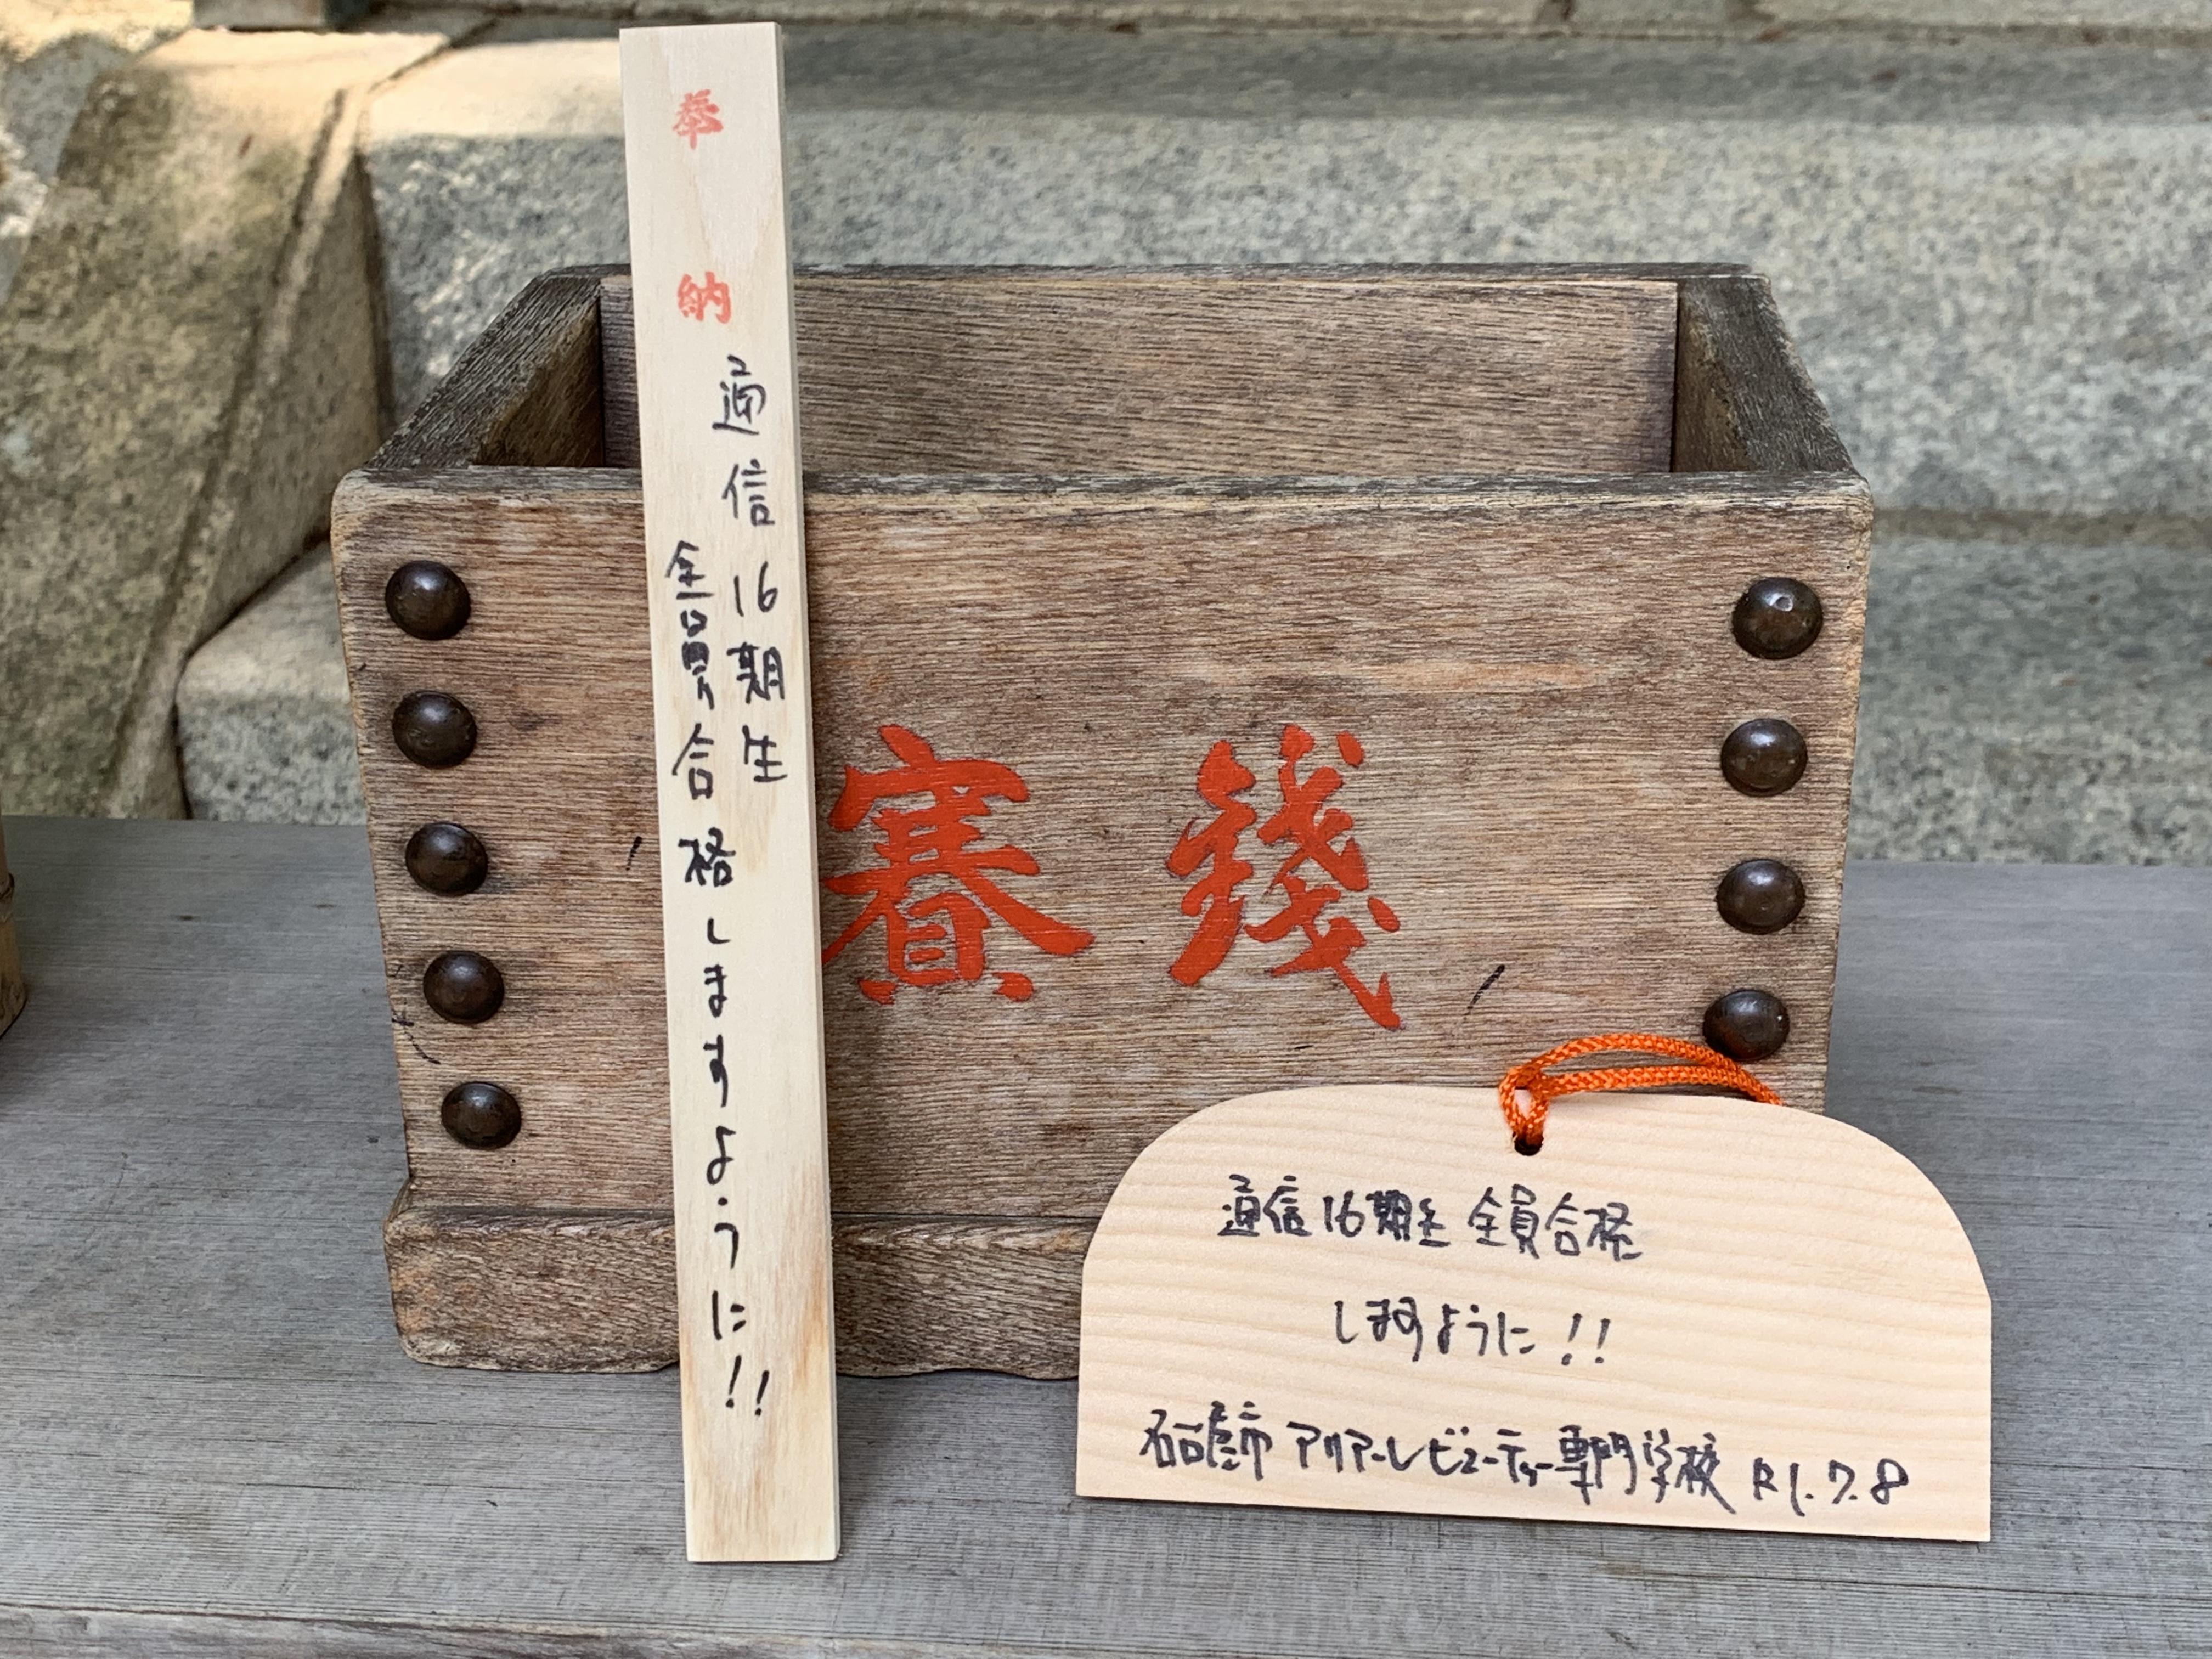 奉納
通信16期生
全員合格しますように!!
賽銭
通信16期生 全員合格
しますように!!
名古屋市 アリアーレビューティー専門学校 R1.7.8